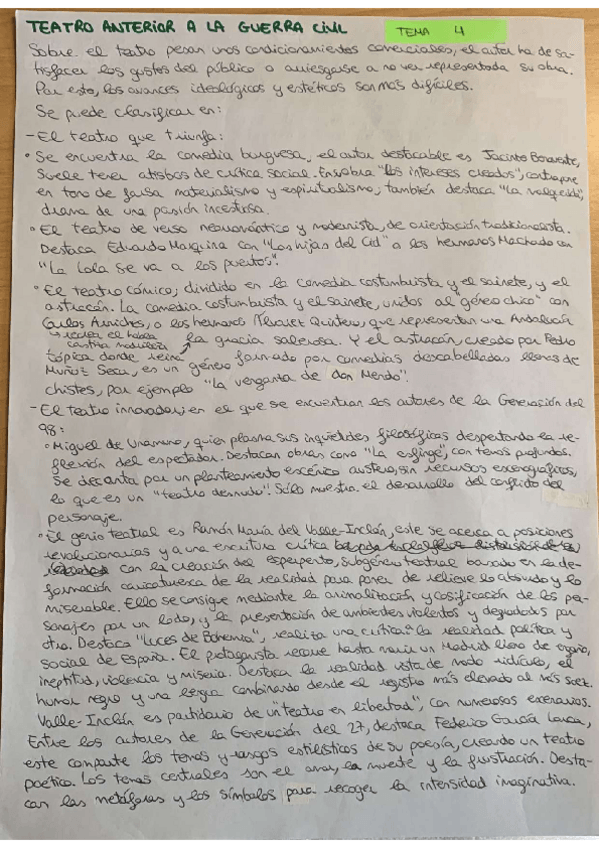 TEATRO ANTERIOR A LA GUERRA CIVIL
TEMA 4
Sobre el teatro pesan unos condicionamientos comerciales, el autor ha de sa-
tisfacer los gustos del público o arriesgarse a no ver representada su obra.
Por esto, los avances ideológicos y estéticos son más difíciles.
Se puede clasificar en:
- El teatro que triunfa:
• Se encuentra la comedia burguesa, el autor destacable es Jacinto Benavente,
Suele tener atisbos de crítica social. En su obra "los intereses creados", contrapone
en tono de farsa materialismo y espiritualismo, también destaca "La malquerida",
drama de una pasión incestuosa.
• El teatro de verso neorromántico y modernista, de orientación tradicionalista.
Destaca Eduardo Marquina con "Las hijas del Cid" o los hermanos Machado con
"La Lola se va a los puertos".
• El teatro cómico, dividido en la comedia costumbrista y el sainete, y el
astracán. La comedia costumbrista y el sainete, unidos al "género chico" con
Carlos Arniches, o los hermanos Álvarez Quintero, que representan una Andalucía
↳ recrea el habla castiza madrileña
tópica donde reina la gracia salerosa. Y el astracán, creado por Pedro
Muñoz Seca, es un género formado por comedias descabelladas llenas de
chistes, por ejemplo "La venganza de don Mendo".
- El teatro innovador, en el que se encuentran los autores de la Generación del
98:
• Miguel de Unamuno, quien plasma sus inquietudes filosóficas despertando la re-
flexión del espectador. Destacan obras como "La esfinge", con temas profundos.
Se decanta por un planteamiento escénico austero, sin recursos escenográficos,
lo que es un "teatro desnudo". Sólo muestra el desarrollo del conflicto del
personaje.
• El genio teatral es Ramón María del Valle-Inclán, este se acerca a posiciones
revolucionarias y a una escritura crítica
con la creación del esperpento, subgénero teatral basado en la de-
formación caricaturesca de la realidad para poner de relieve lo absurdo y lo
miserable. Ello se consigue mediante la animalización y cosificación de los per-
sonajes por un lado, y la presentación de ambientes violentos y degradados por
otro. Destaca "Luces de Bohemia", realiza una crítica a la realidad política y
social de España. El protagonista recorre hasta morir un Madrid lleno de engaño,
ineptitud, violencia y miseria. Destaca la realidad vista de modo ridículo, el
humor negro y una lengua combinando desde el registro más elevado al más soez.
Valle-Inclán es partidario de un "teatro en libertad", con numerosos escenarios.
Entre los autores de la Generación del 27, destaca Federico García Lorca,
este comparte los temas y rasgos estilísticos de su poesía, creando un teatro
poético. Los temas centrales son el amor, la muerte y la frustración. Desta-
can las metáforas y los símbolos para recoger la intensidad imaginativa.